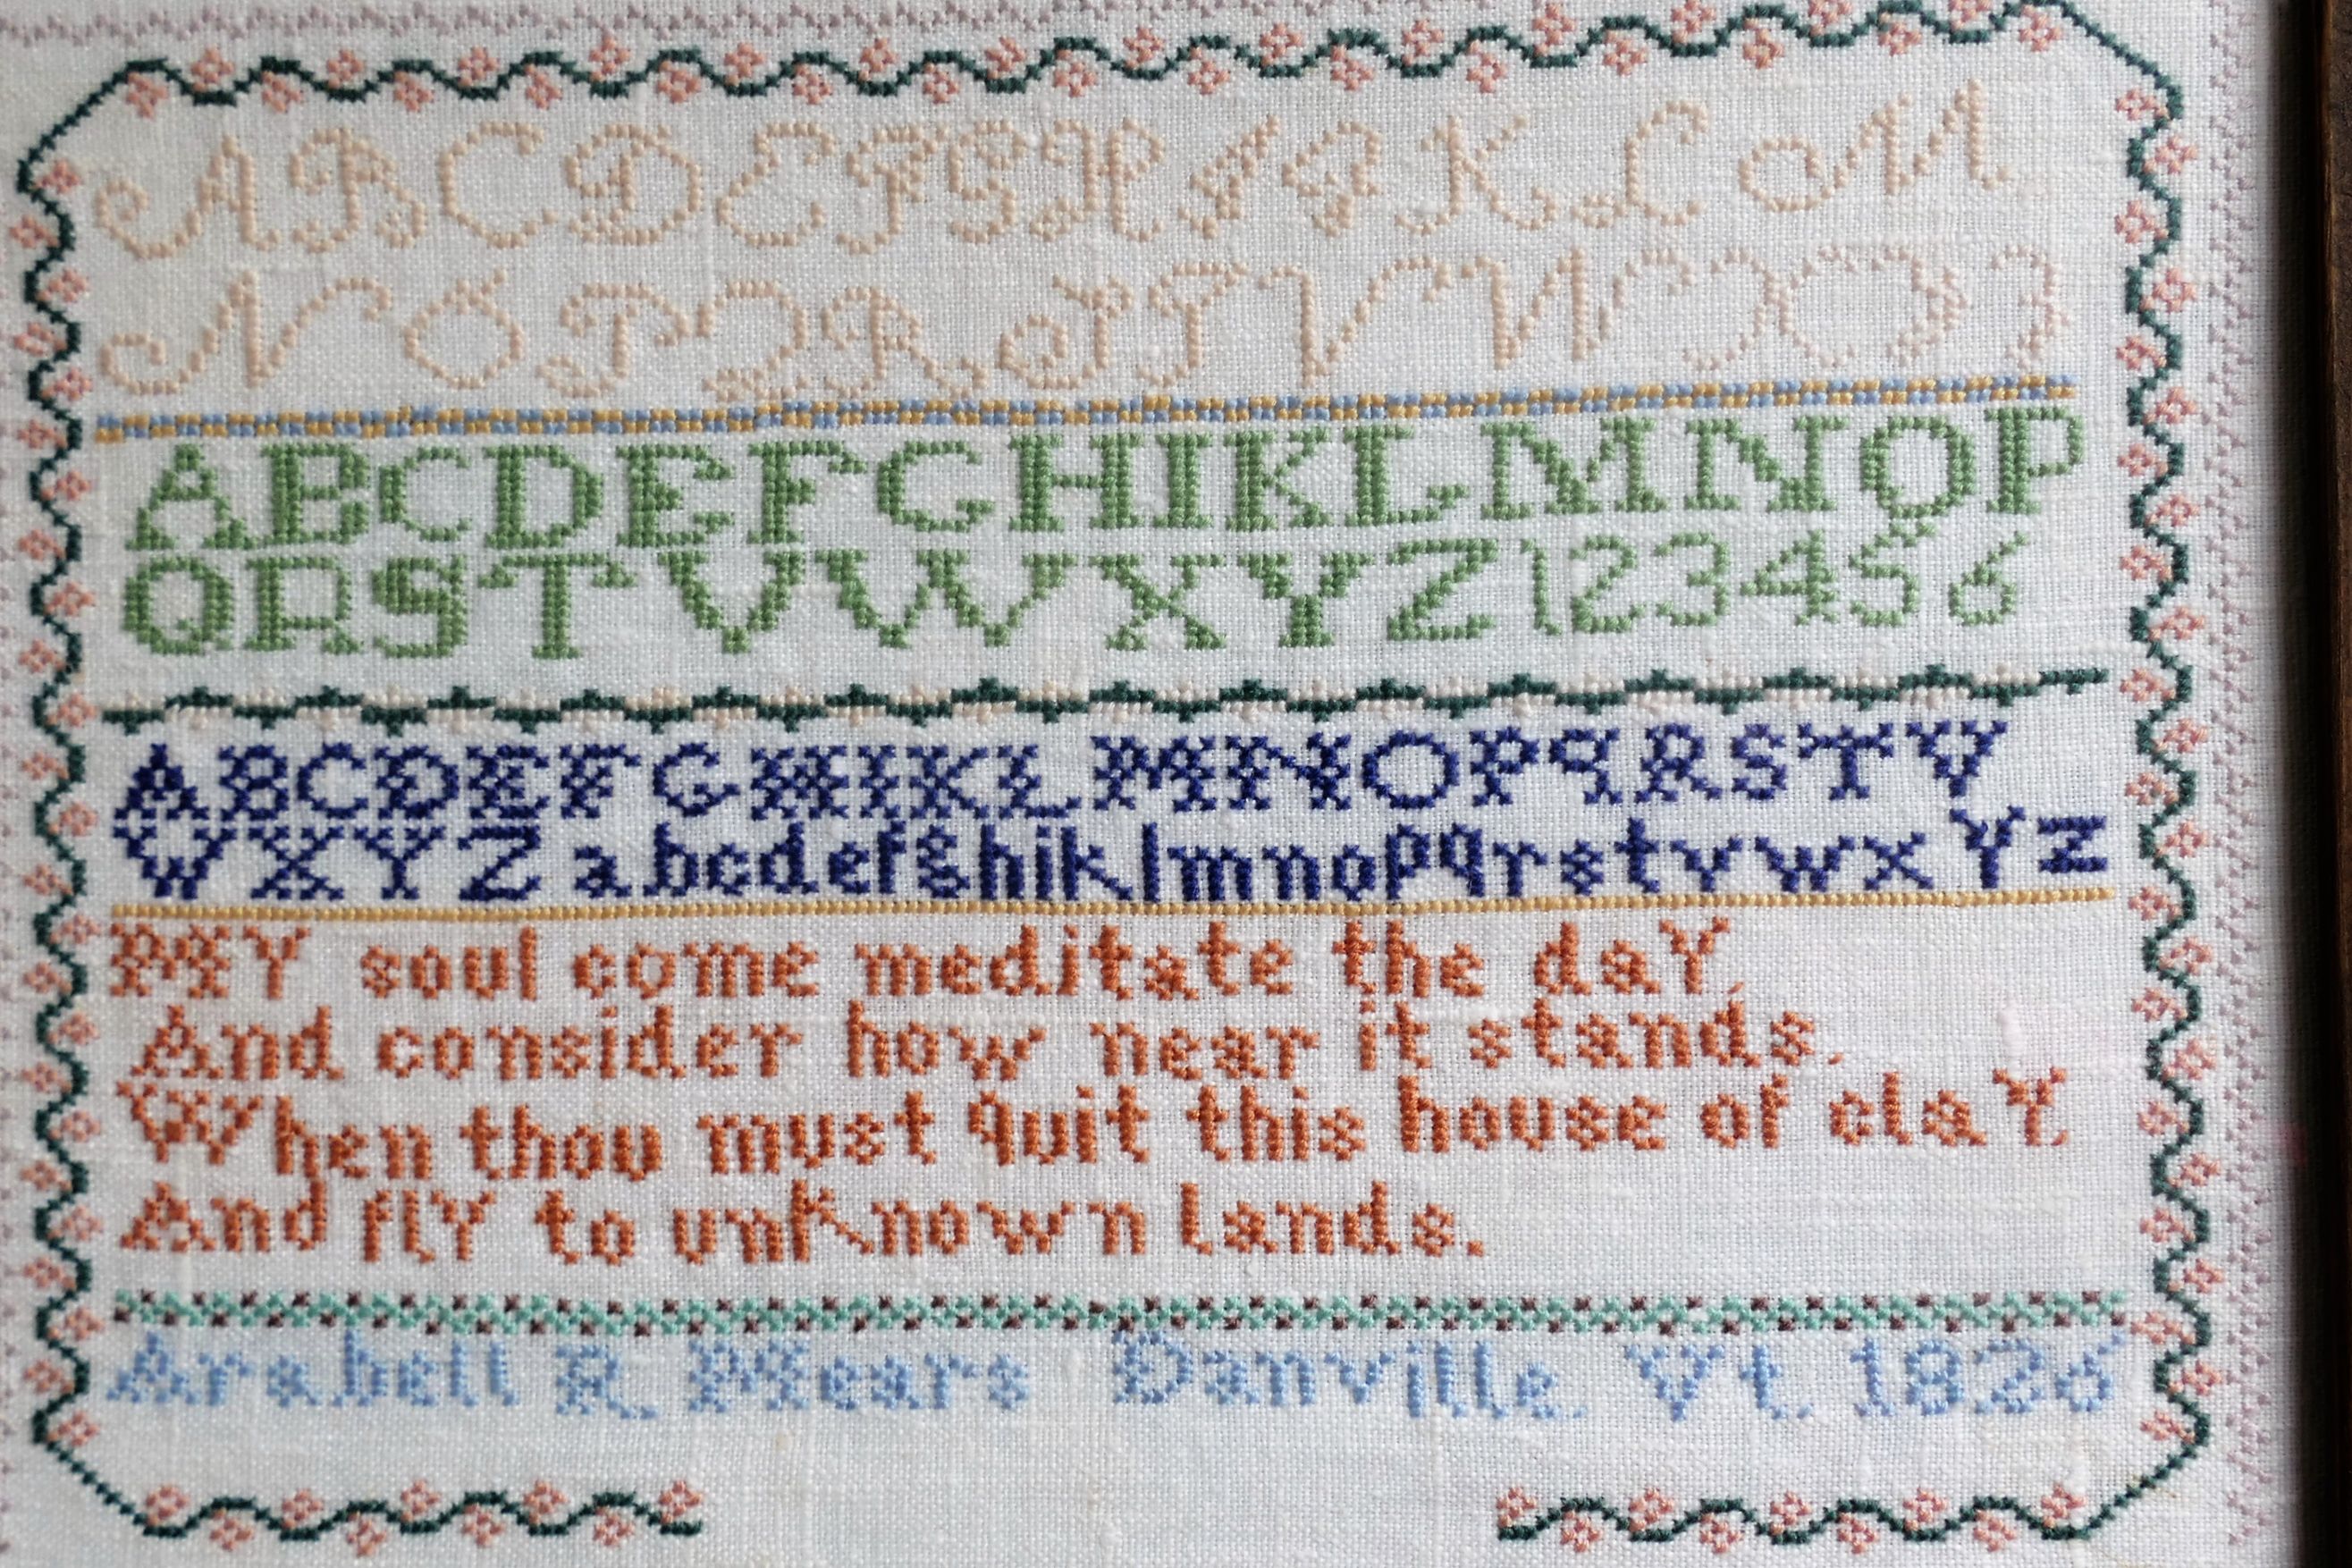 A B C D E F G H I J K L M
N O P Q R S T V W X Y Z
A B C D E F G H I K L M N O P
Q R S T V W X Y Z 1 2 3 4 5 6
A B C D E F G H I K L M N O P q R S T V
W X Y Z a b c d e f g h i k l m n o p q r s t v w x Y z
MY soul come meditate the daY,
And consider how near it stands,
When thou must quit this house of claY,
And flY to unknown lands.
Arabell R. Mears Danville. Vt. 1826